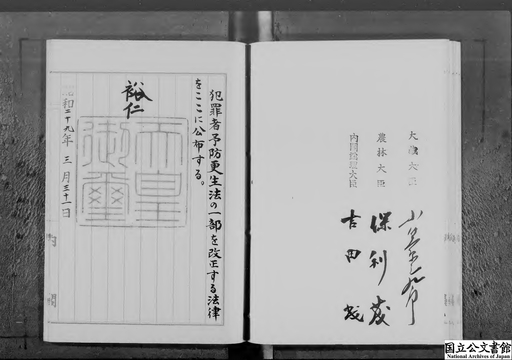 大蔵大臣 小笠原三九郎
農林大臣 保利茂
内閣総理大臣 吉田茂
犯罪者予防更生法の一部を改正する法律
をここに公布する。
裕仁
天皇
御璽
昭和二十九年 三月三十一日
内閣
国立公文書館
National Archives of Japan